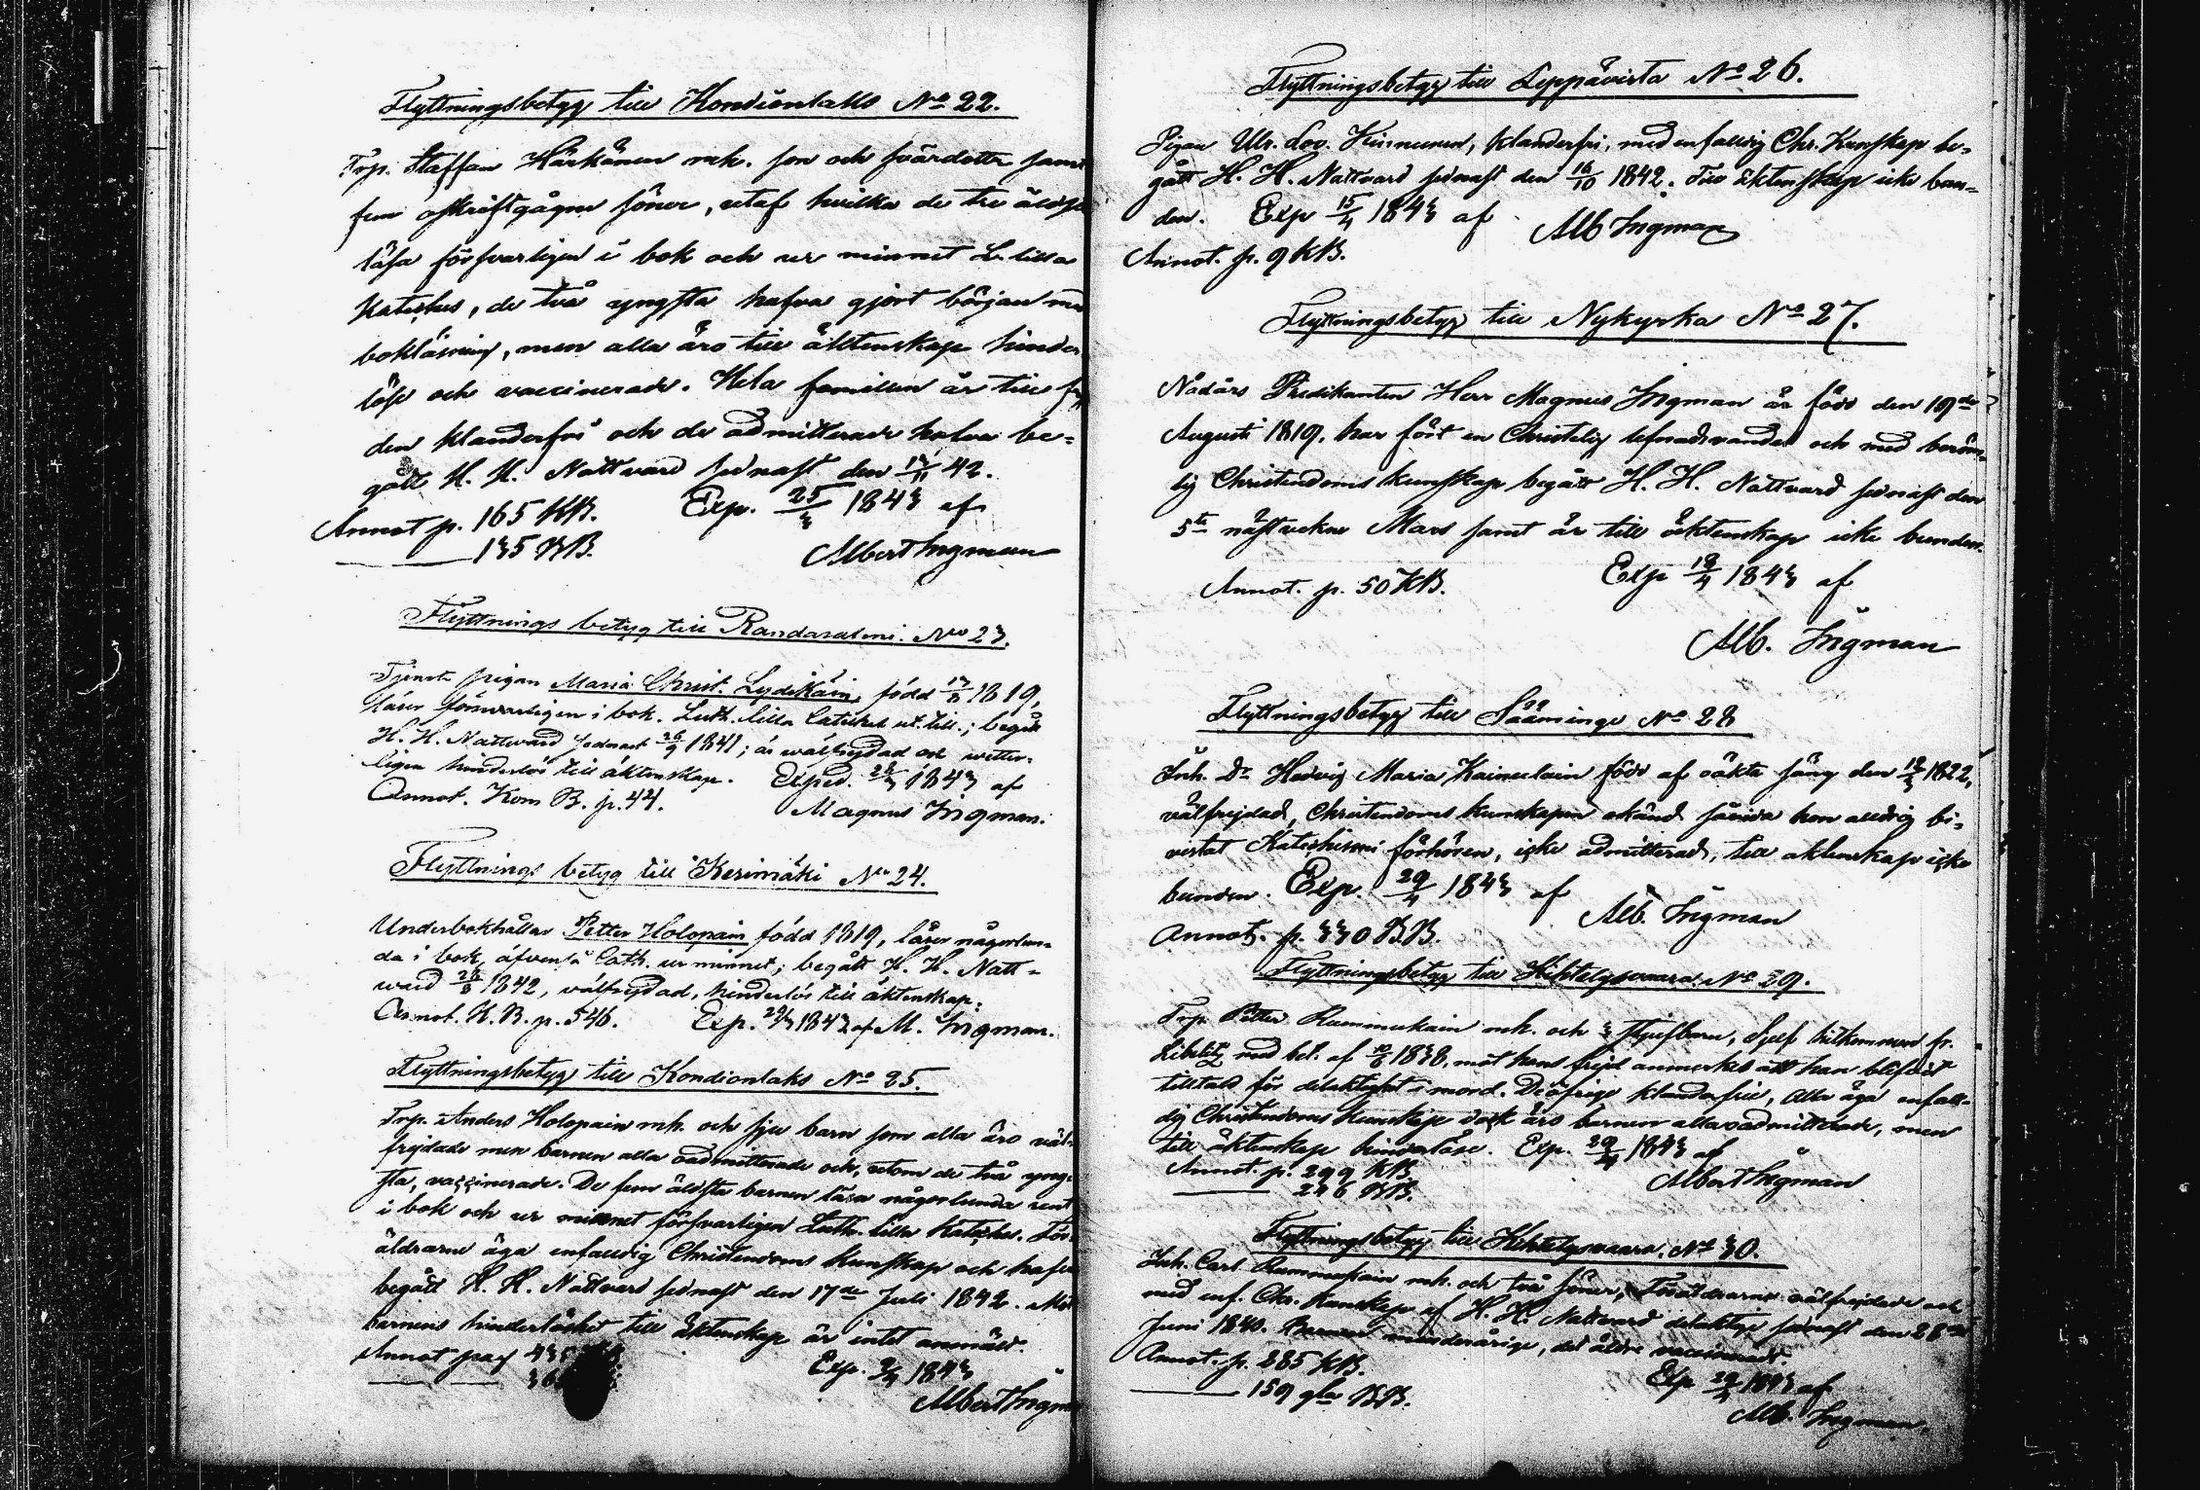 Flyttningsbetyg till Kondionlaks No 22.
Trp. Staffan Härkänen mh. son och svärdotter samt
fem afskriftgågne söner, utaf hvilka de tre äldsta
läsa försvarligen i bok och ur minnet L. lilla
Kateches, de två yngsta hafva gjort början me
bokläsning, men alla äro till äktenskap hinder
löse och vaccinerade. Hela familien är till frej
den klanderfri och de admitterade hafva be=
gått H. H. Nattvard sednast den 17/11 42.
Annot p. 165 KB. Exp. 25/3 1843 af
135 BB. Albert Ingman
Flyttnings betyg till Randasalmi. No 23.
Tjenste pigan Maria Christ. Lydikäin, född 17/8 1819,
läser försvarligen i bok. Luth. lilla Catikes ut. till.; begått
H. H. Nattward sednast 26/9 1841; är wälfrejdad och wetter-
ligen hinderlös till äktenskap. Exped. 28/3 1843 af
Annot. Kom B. p. 44. Magnus Ingman.
Flyttnings betyg till Kerimäki No 24.
Underbokhållar Petter Holopain född 1819, läser någorlun-
da i bok, äfvenså Cath. ur minnet; begått H. H. Natt-
ward 26/8 1842, välfrejdad, hinderlös till äktenskap.
Annot. K. B. p. 546. Exp. 29/3 1843 af M. Ingman.
Flyttningsbetyg till Kondionlaks No 25.
Trp. Anders Holopain mh. och sju barn som alla äro väl-
frejdade men barnen alla oadmitterade och, utom de två yng-
sta, vaccinerade. De fem äldsta barnen läsa någorlunda rent
i bok och ur minnet försvarligen Luth. lilla Kateches. För-
äldrarne äga enfaldig Christendoms kunskap och hafva
begått H. H. Nattvard sednast den 17de Juli 1842. Mot
barnens hinderlöshet till äktenskap är intet anmäldt.
Annot pag 435
Exp. 2/4 1843
Albert Ingm
Flyttningsbetyg till Leppävirta No 26.
Pigan Ulr. Lov. Kinnunen, klanderfri, med enfaldig Chr. Kunskap be-
gått H. H. Nattvard sednast den 16/10 1842. Till äktenskap icke bun-
den. Exp 15/4 1843 af Alb Ingman
Annot. p. 9 KB.
Flyttningsbetyg till Nykyrka No 27.
Nådårs Predikanten Herr Magnus Ingman är född den 19de
Augusti 1819, har fört en Christelig lefnadsvandel och med beröm-
lig Christendoms kunskap begått H. H. Nattvard sednast den
5te nästvekne Mars samt är till äktenskap icke bunden.
Annot. p. 50 KB. Exp 19/4 1843 af
Alb. Ingman
Flyttningsbetyg till Sääminge No 28
Inh. Dr Hedvig Maria Kainulain född af oäkta säng den 12/3 1822,
välfrejdad, Christendoms kunskapen okänd såvida hon alldrig bi-
vistat Katechismi förhören, icke admitterad, till äktenskap icke
bunden. Exp. 29/4 1843 af Alb. Ingman
Annot. p. 330 BB.
Flyttningsbetyg till Kihtelysvaara No 29.
Trp. Petter Rummukain mh. och 3 styfbarn, sjelf hitkommen fr.
Libelitz med bet. af 10/6 1838, mot hans frejd anmerkes att han blifvit
tilltald för delaktighet i mord. De öfrige klanderfrie, alla äga enfal-
dig Christendoms kunskap dock äro barnen alla oadmitterade, men
till äktenskap hinderlöse. Exp. 29/4 1843 af
Annot. p. 299 KB. Albert Ingman
246 BB.
Flyttningsbetyg till Kihtelysvaara. No 30.
Inh. Carl Rummukain mh. och två söner, Föräldrarne välfrejdade och
med enf. Chr. kunskap af H. H. Nattvard delaktige sednast den 28de
Juni 1840. Barnen minderårige, det äldre vaccineradt.
Annot. p. 285 KB. Exp 29/4 1843 af
159 BB. Alb. Ingman.